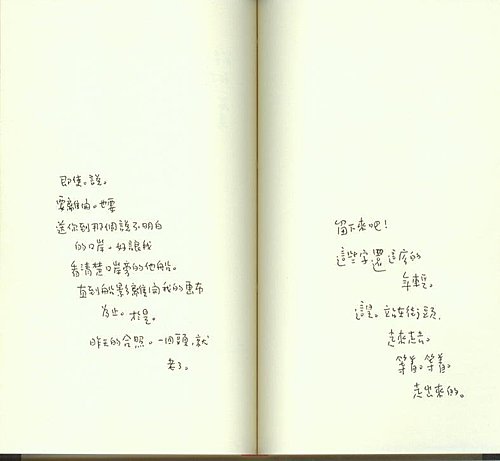 即使。說。
要離尚。也要
送你到那個說不明白
的口岸。好讓我
看清楚口岸旁的他船。
直到船影離向我的惠布
為止。於是。
昨天的合照。一個頭。就
老了。
留下來吧！
這些字還這麼的
年輕。
站在街頭。
走來走去。
等着。等着。
走出來的。